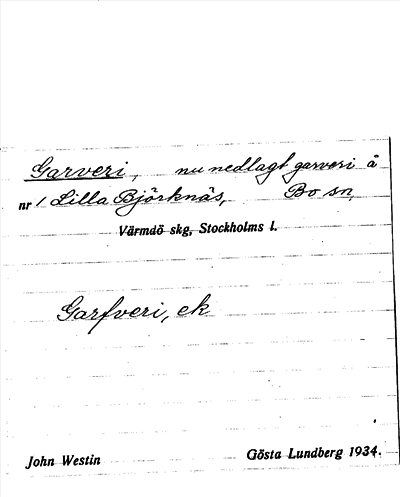 Garveri, nu nedlagt garveri å
nr 1 Lilla Björknäs, Bo sn,
Värmdö skg, Stockholms l.
Garfveri, ek
John Westin Gösta Lundberg 1934.